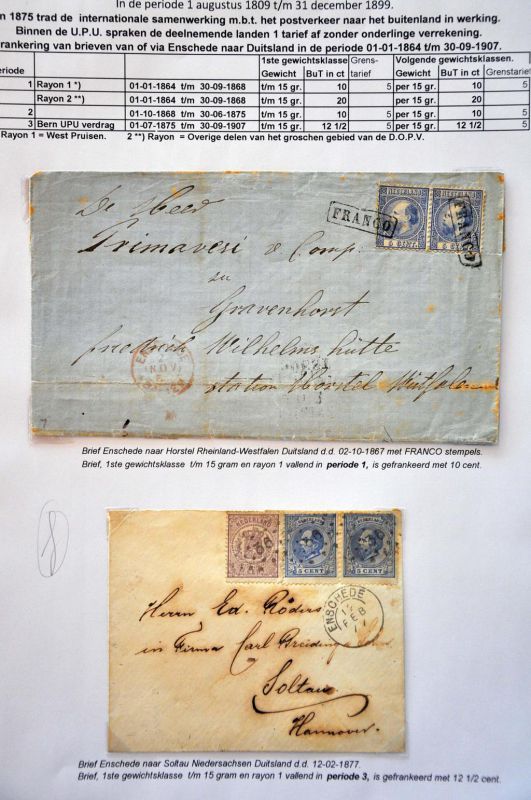 In de periode 1 augustus 1809 t/m 31 december 1899.
n 1875 trad de internationale samenwerking m.b.t. het postverkeer naar het buitenland in werking.
Binnen de U.P.U. spraken de deelnemende landen 1 tarief af zonder onderlinge verrekening.
rankering van brieven van of via Enschede naar Duitsland in de periode 01-01-1864 t/m 30-09-1907.
1ste gewichtsklasse Grens- Volgende gewichtsklassen.
eriode Gewicht BuT in ct tarief Gewicht BuT in ct Grenstarief
1 Rayon 1 *) 01-01-1864 t/m 30-09-1868 t/m 15 gr. 10 5 per 15 gr. 10 5
Rayon 2 **) 01-01-1864 t/m 30-09-1868 t/m 15 gr. 20 per 15 gr. 20
2 01-10-1868 t/m 30-06-1875 t/m 15 gr. 10 5 per 15 gr. 10 5
3 Bern UPU verdrag 01-07-1875 t/m 30-09-1907 t/m 15 gr. 12 1/2 5 per 15 gr. 12 1/2 5
Rayon 1 = West Pruisen. 2 **) Rayon = Overige delen van het groschen gebied van de D.O.P.V.
NEDERLAND NEDERLAND
5 CENT 5 CENT
FRANCO FRANCO
De Heer
Primavesi & Comp:
zu
Gravenhorst
friedrich Wilhelms hütte
station Horstel Westfalen
NOV
7
Brief Enschede naar Horstel Rheinland-Westfalen Duitsland d.d. 02-10-1867 met FRANCO stempels.
Brief, 1ste gewichtsklasse t/m 15 gram en rayon 1 vallend in periode 1, is gefrankeerd met 10 cent.
8
NEDERLAND NEDERLAND NEDERLAND
5 CENT 5 CENT
ENSCHEDE
12
FEB
Herrn Ed. Röders
in Firma Carl
Soltau
Hannover.
Brief Enschede naar Soltau Niedersachsen Duitsland d.d. 12-02-1877.
Brief, 1ste gewichtsklasse t/m 15 gram en rayon 1 vallend in periode 3, is gefrankeerd met 12 1/2 cent.